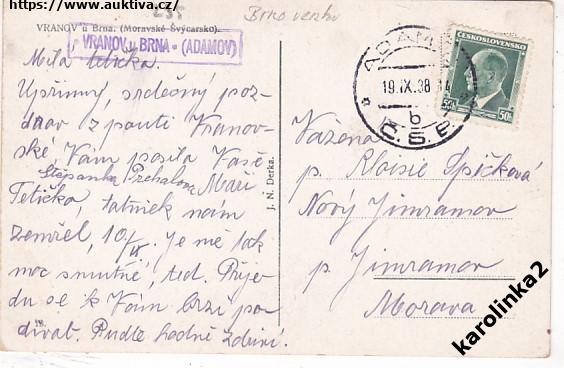 https://www.auktiva.cz/
235
Brno venkov
VRANOV u Brna. (Moravské Švýcarsko).
VRANOV u BRNA - (ADAMOV)
Milá tetička.
Upřímný, srdečný poz-
drav z pouti Vranov-
ské Vám posílá Vaše
Štěpánka Prchalova Maří
Tetičko, tatínek nám
zemřel, 10/IX. Je mě tak
moc smutné, teď. Přije-
du se k Vám brzi po-
dívat. Buďte hodně zdrávi.
J. N. Derka.
ADAMOV
19.IX.38
b
Č.S.P.
ČESKOSLOVENSKO
50h
50h
Vážená
p. Aloisie Špičková
Nový Jimramov
p. Jimramov
Morava
karolinka2